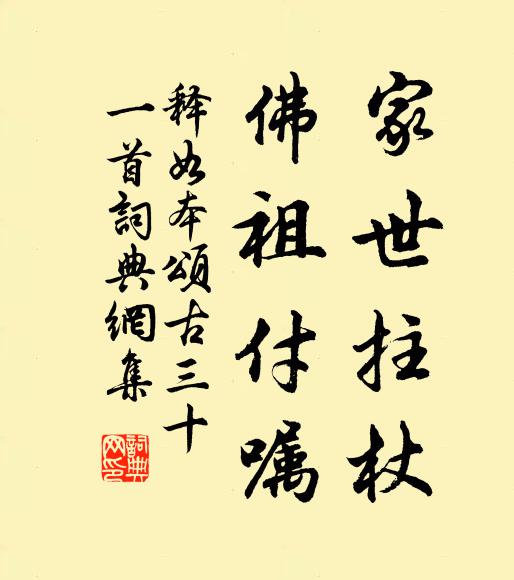 家世拄杖
佛祖付嘱
释如本頌古三十
一首詞典網集
詞典网印